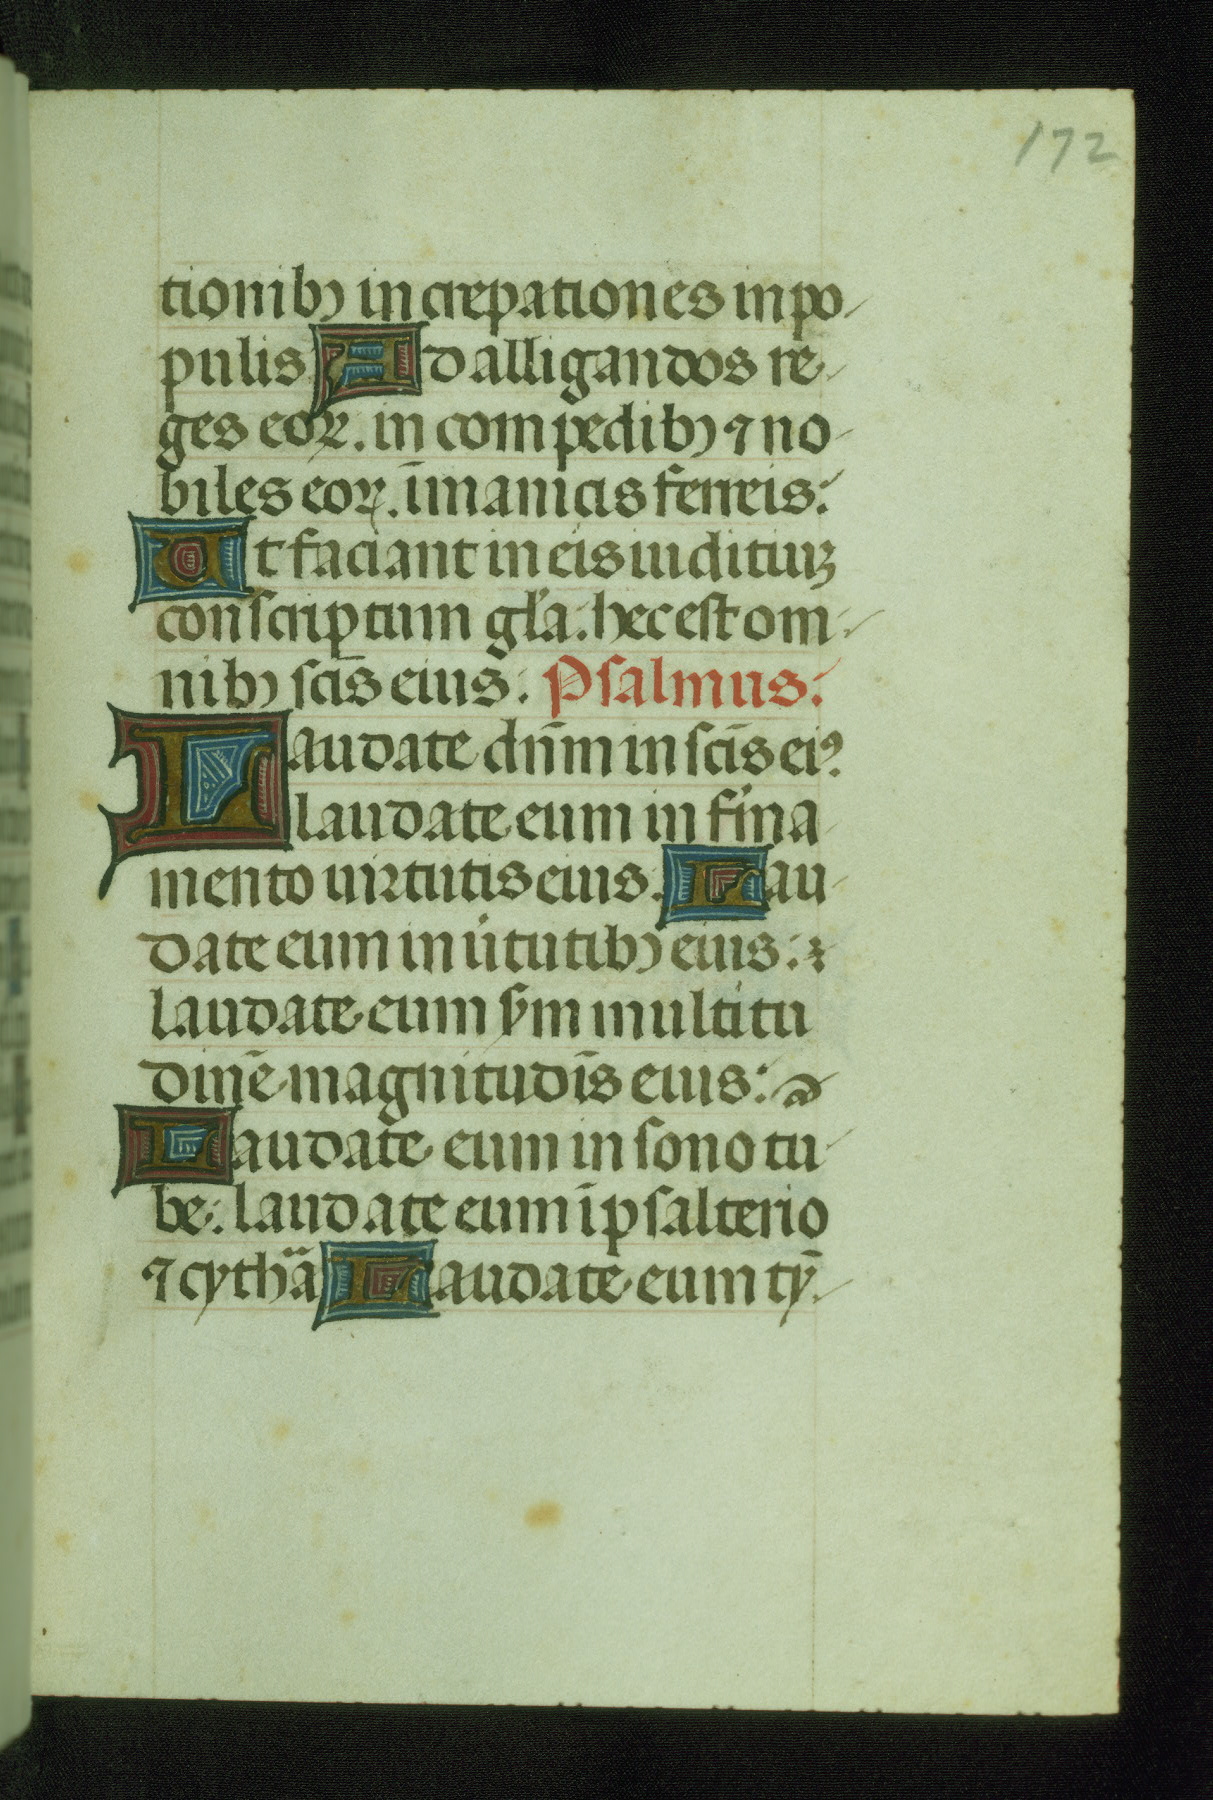 172
tionibꝰ increpationes in po
pulis Ad alligandos re
ges eoꝝ. in compedibꝰ ⁊ no
biles eoꝝ. ī manicis ferreis:
Ut faciant in eis iuditiuꝫ
conscriptum gl'a: hec est om
nibꝰ sc̄is eius: Psalmus:
Laudate dn̄m in sc̄is eiꝰ:
laudate eum in firma
mento uirtutis eius. Lau
date eum in u'tutibꝰ eius: ⁊
laudate eum s'm multitu
dinē magnitudīs eius:
Laudate eum in sono tu
be: laudate eum ī psalterio
⁊ cytha Laudate eum tȳ